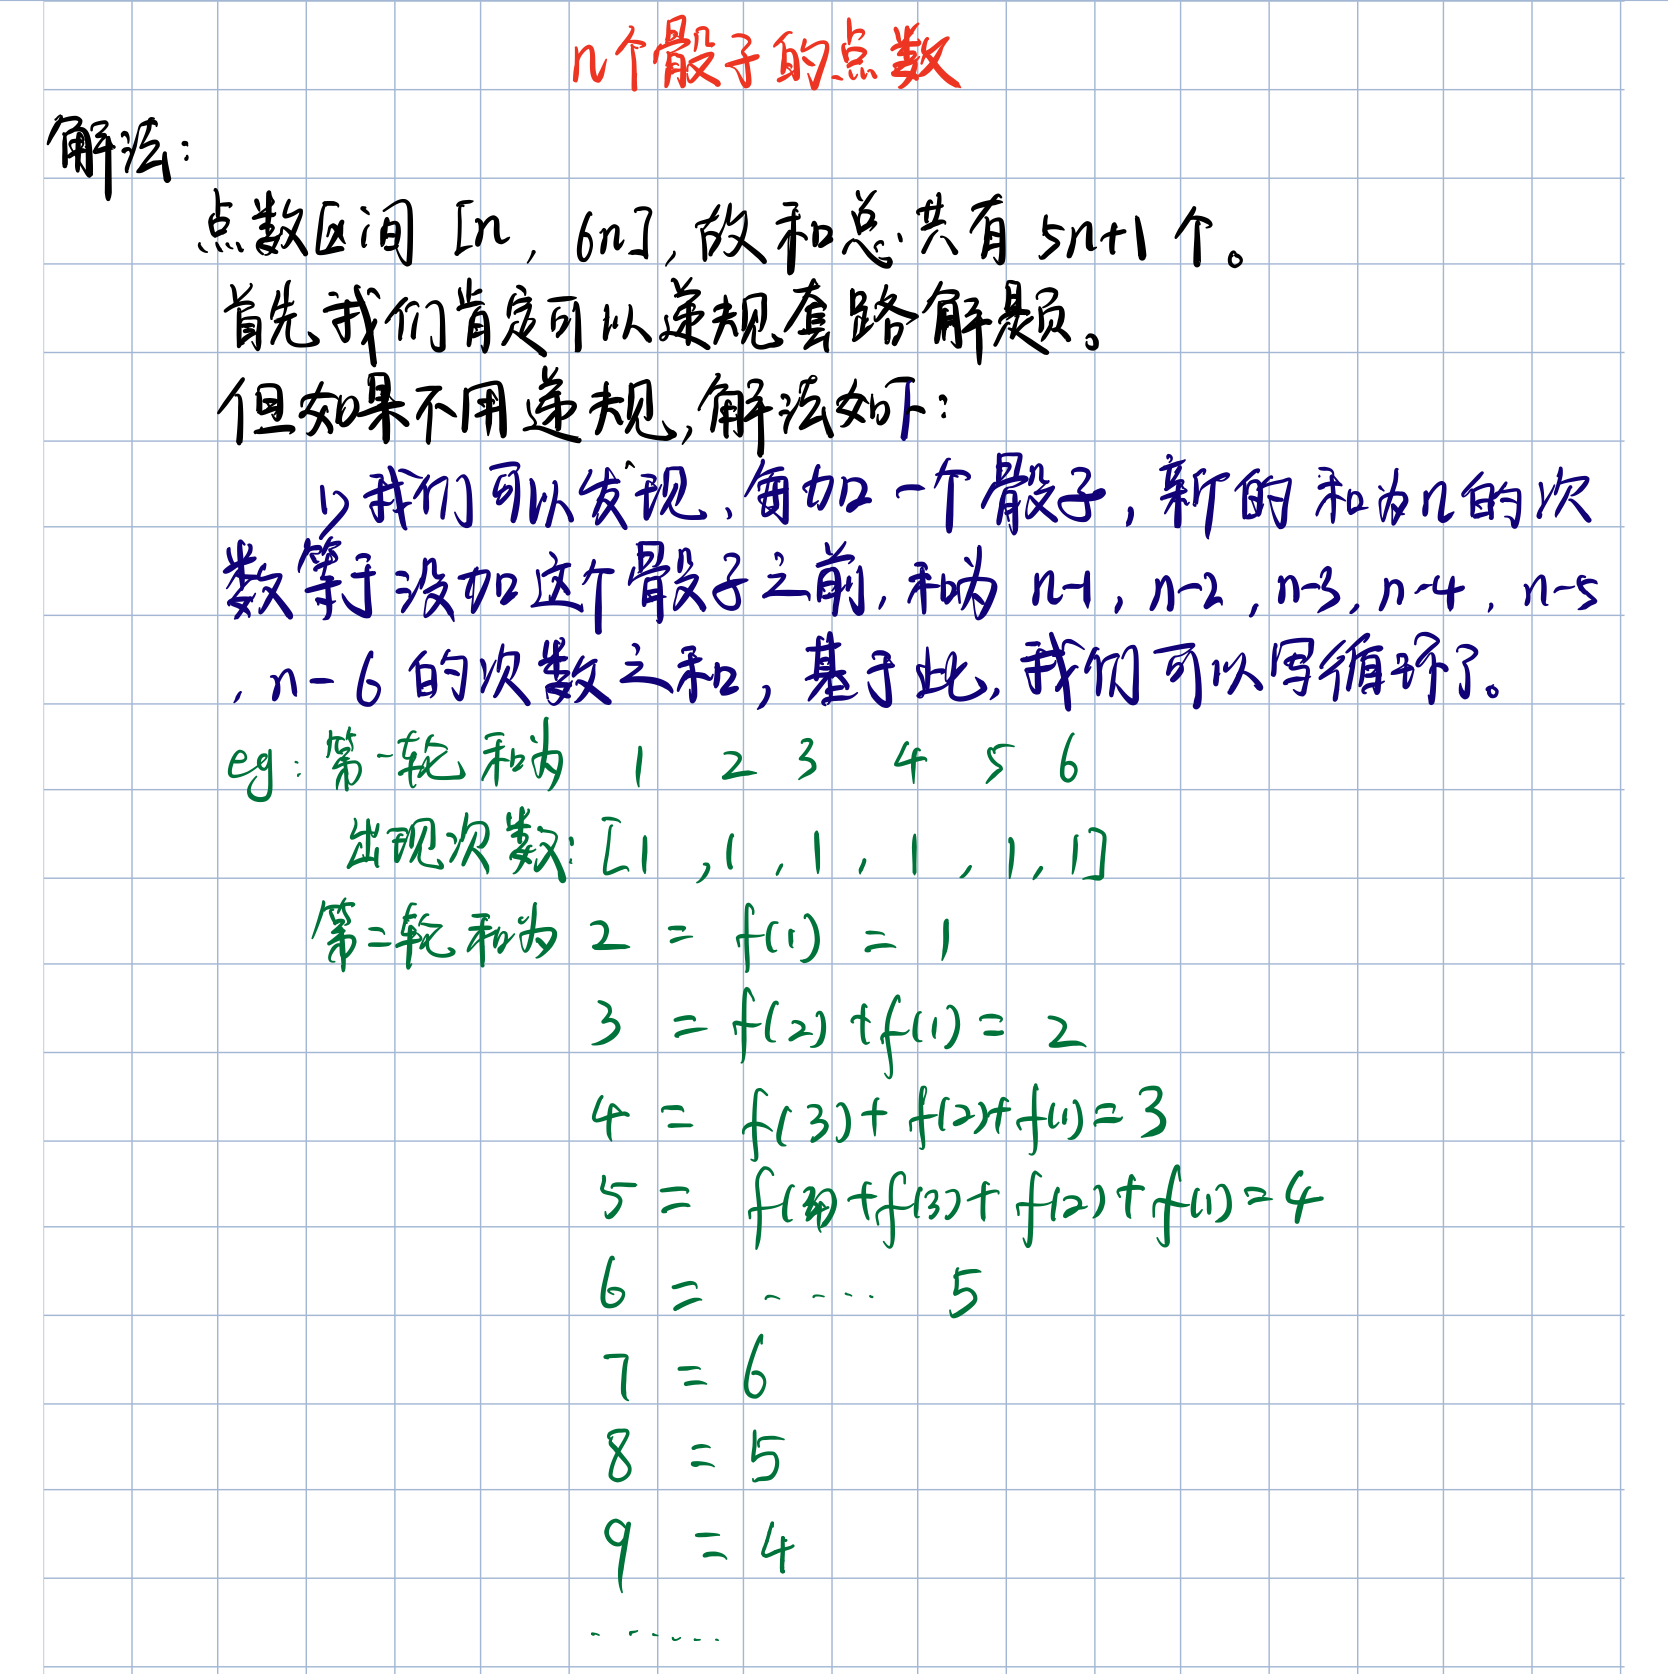 n个骰子的点数
解法:
点数区间 [n, 6n],故和总共有 5n+1 个。
首先我们肯定可以递规套路解题。
但如果不用递规,解法如下:
1> 我们可以发现、每加一个骰子,新的和为n的次
数等于没加这个骰子之前,和为 n-1, n-2, n-3, n-4, n-5
, n-6 的次数之和,基于此,我们可以写循环了。
eg: 第一轮和为 1 2 3 4 5 6
出现次数: [1 ,1 , 1 , 1 , 1, 1]
第二轮和为 2 = f(1) = 1
3 = f(2) + f(1) = 2
4 = f(3) + f(2) + f(1) = 3
5 = f(4) + f(3) + f(2) + f(1) = 4
6 = ····· 5
7 = 6
8 = 5
9 = 4
······